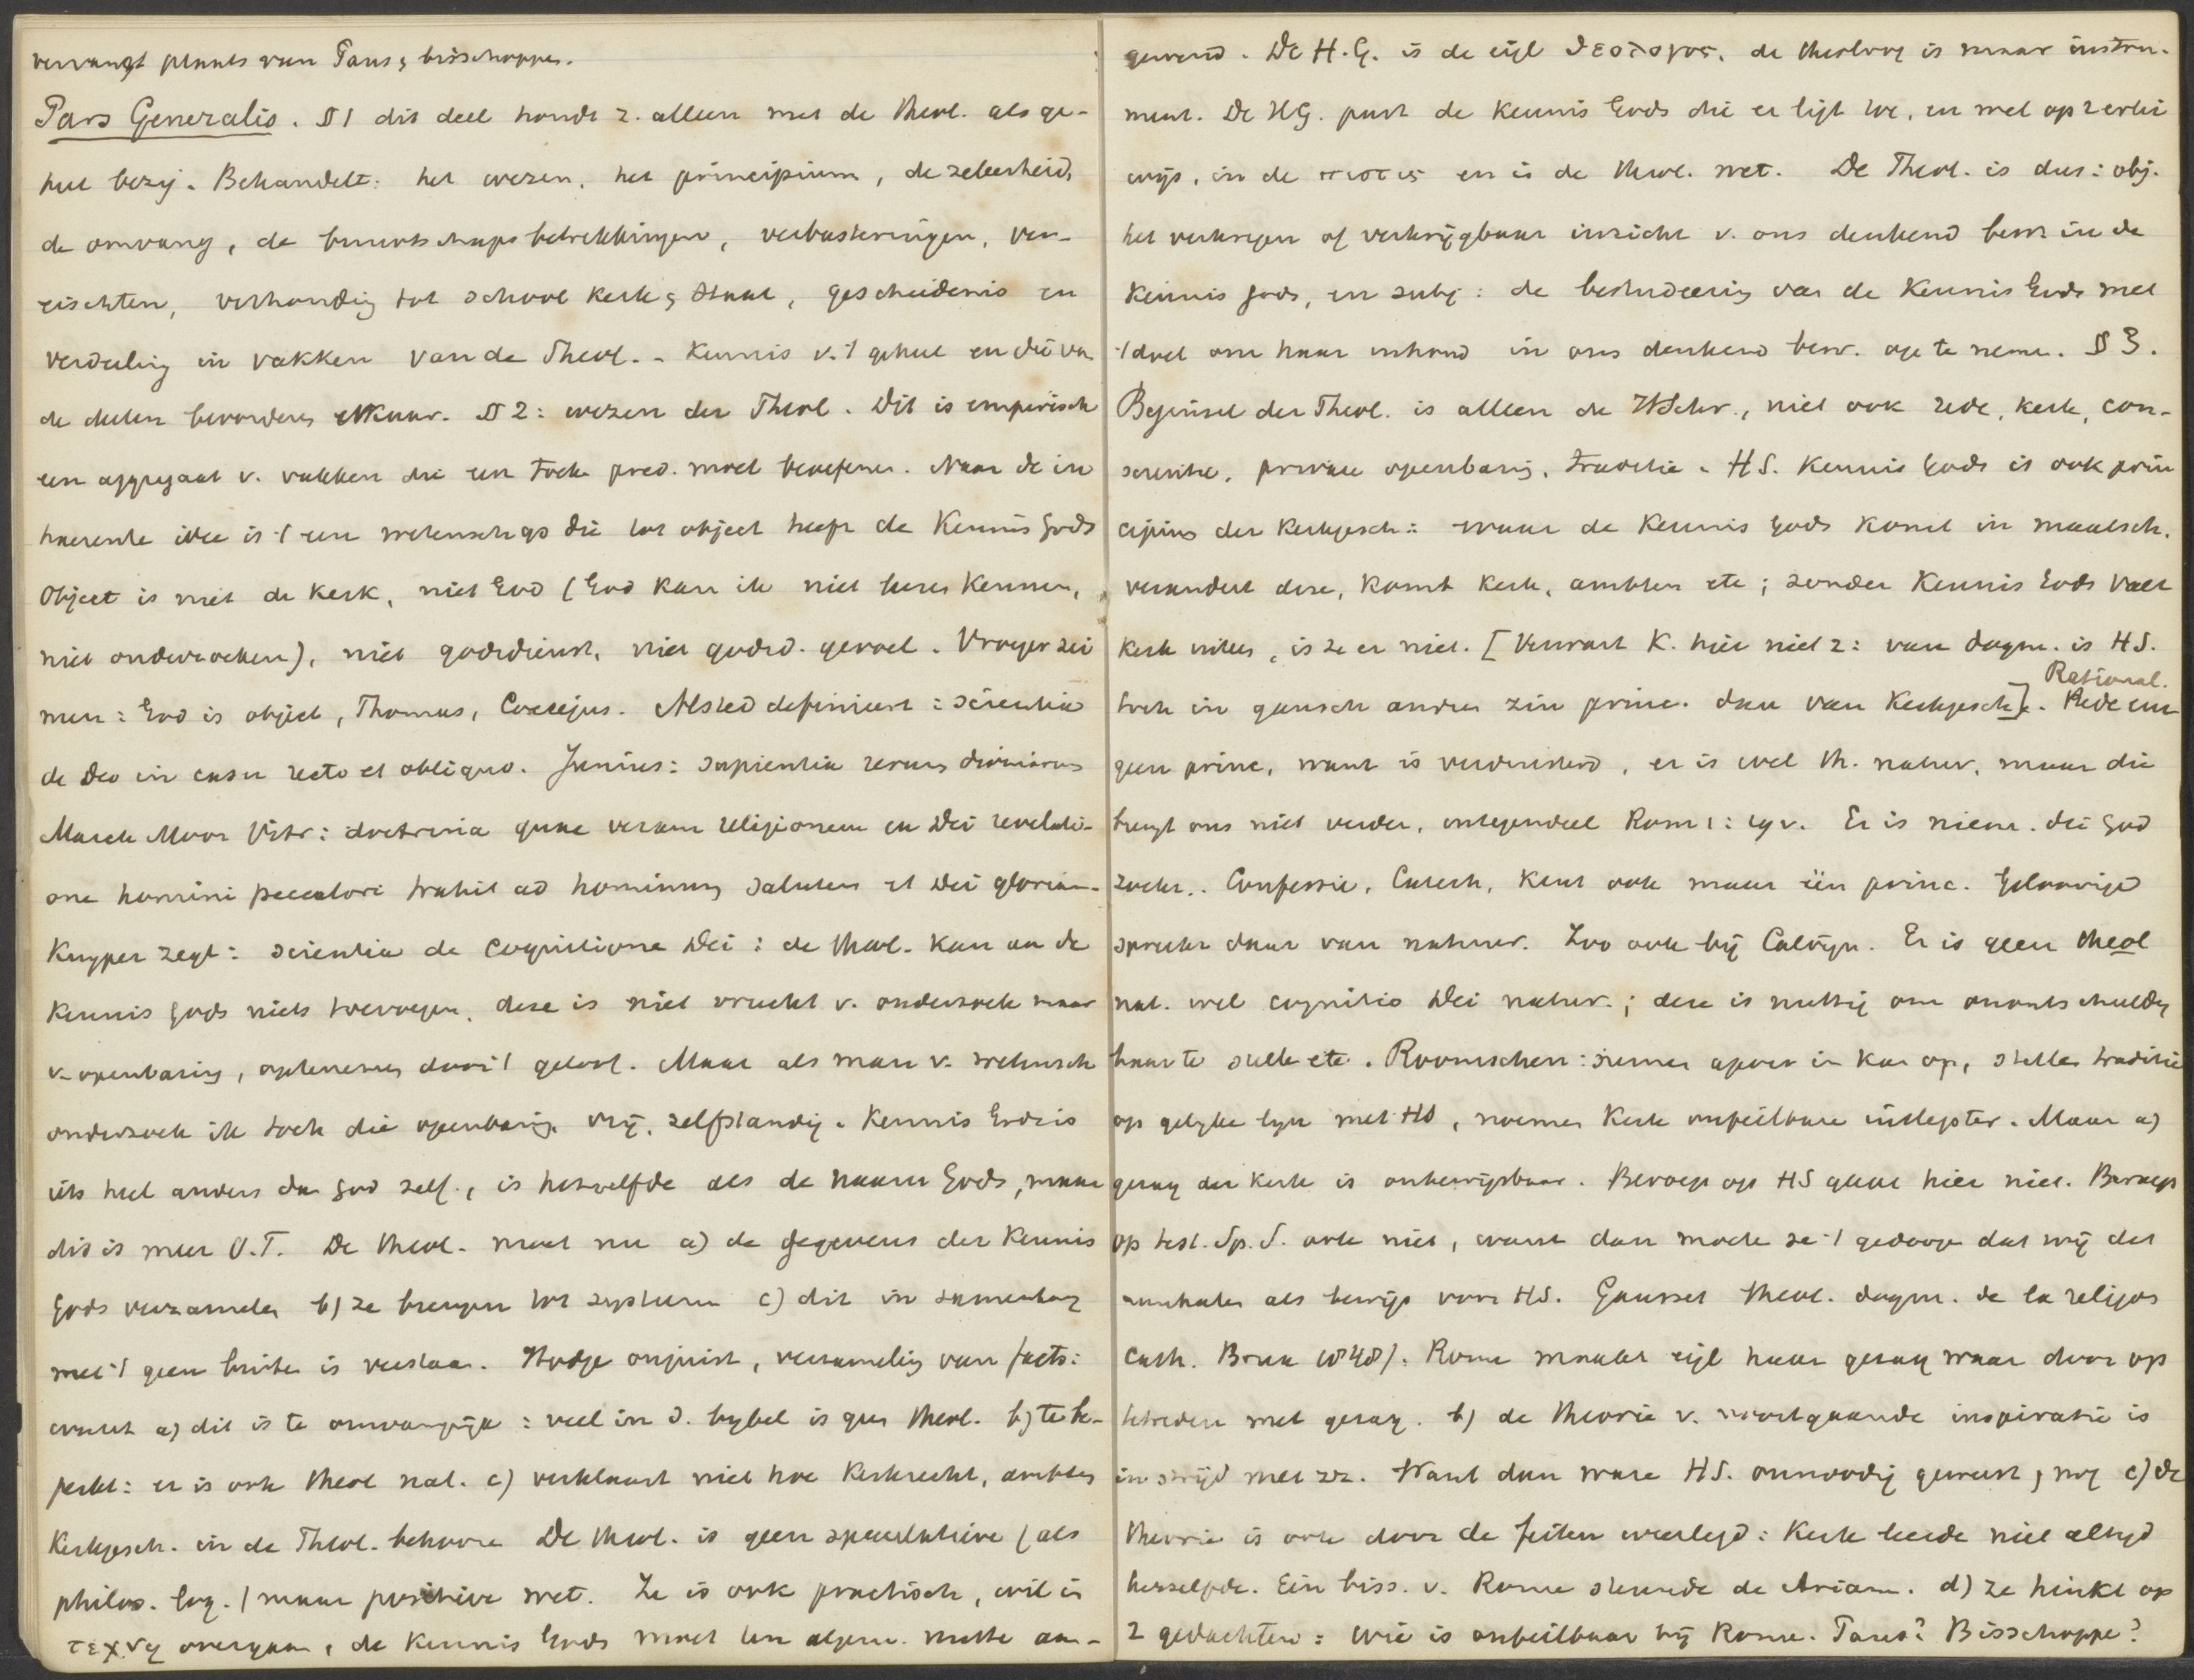 vervangt plaats van Paus & bisschoppen.
Pars Generalis. § 1 dit deel houdt z. alleen met de theol. als ge-
heel bezig. Behandelt: het wezen, het principium, de zekerheid,
de omvang, de buurtschapsbetrekkingen, verbasteringen, ver-
eischten, verhouding tot school kerk & staat, geschiedenis en
verdeeling in vakken van de Theol. - Kennis v. 't geheel en die van
de deelen bevorderen elkaar. § 2: wezen der Theol. Dit is empirisch
een aggregaat v. vakken die een toek. pred. moet beoefenen. Naar de in
haerente idee is 't een wetensch. die tot object heeft de Kennis Gods
Object is niet de Kerk, niet God (God kan ik niet leeren kennen,
niet onderzoeken), niet godsdienst, niet godsd. gevoel. Vroeger zei
men: God is object, Thomas, Coccejus. Alsted definieert: scientia
de Deo in casu recto et obliquo. Junius: sapientia rerum divinarum
Marck Moor Vitr: doctrina quae veram religionem ex Dei revelati-
one homini peccatori tradit ad hominum salutem et Dei gloriam.
Kuyper zegt: scientia de cognitione Dei: de theol. kan aan de
kennis Gods niets toevoegen, deze is niet vrucht v. onderzoek maar
v. openbaring, opnemen door 't geloof. Maar als man v. wetensch
onderzoek ik toch die openbaring vrij, zelfstandig. Kennis Gods is
iets heel anders dan God zelf, is hetzelfde als de naam Gods, maar
dit is meer O.T. De theol. moet nu a) de gegevens der Kennis
Gods verzamelen b) ze brengen tot systeem c) dit in samenhang
met 't geen buiten is verstaan. Hodge onjuist, verzameling van facts:
want a) dit is te omvangrijk: veel in d. bybel is geen theol. b) te be-
perkt: er is ook theol nat. c) verklaart niet hoe Kerkrecht, ambten
Kerkgesch. in de Theol. behooren De theol. is geen speculatieve (als
philos. log.) maar positieve wet. Ze is ook practisch, wil in
τεχνη overgaan, de kennis Gods moet ten algem. nutte aan-
gewend. De H.G. is de eigl θεολογος, de theoloog is maar instru-
ment. De HG. past de kennis Gods die er ligt toe, en wel op 2 erlei
wijs, in de πιστις en in de theol. wet. De Theol. is dus: obj.
het verkregen of verkrijgbaar inzicht v. ons denkend bewz in de
Kennis Gods, en subj: de bestudeering van de Kennis Gods met
't doel om haar inhoud in ons denkend bew. op te nemen. § 3.
Beginsel der Theol. is alleen de HSchr., niet ook rede, kerk, con-
scientie, private openbaring, traditie. HS. Kennis Gods is ook prin
cipium der kerkgesch: waar de kennis Gods komt in maatsch.
verandert deze, komt kerk, ambten etc; zonder Kennis Gods valt
kerk uiteen, is ze er niet. [Verwart K. hier niet 2: van dogm. is HS.
toch in gansch andren zin princ. dan van Kerkgesch]. Rede een
Rational.
geen princ, want is verduisterd, er is wel th. natur, maar die
brengt ons niet verder, integendeel Rom 1: 19 v. Er is niem. die God
zoekt.. Confessie, Catech, kent ook maar één princ. Geloovige
spreekt daar van natuur. Zoo ook bij Calvijn. Er is geen theol
nat. wel cognitio Dei natur.; deze is nuttig om onontschuldig
baar te stellen etc. Roomschen: nemen apocr in kan op, stellen traditie
op gelyke lyn met HS, noemen Kerk onfeilbare uitlegster. Maar a)
gezag der kerk is onbewijsbaar. Beroep op HS gaat hier niet. Beroep
op test. Sp. S. ook niet, want dan moeten ze 't gedoogen dat wij dat
aanhalen als bewijs voor HS. Gousset theol. dogm. de la religion
cath. Brux 1848). Rome maakt eigl haar gezag waar door op
treden met gezag. b) de theorie v. voortgaande inspiratie is
in strijd met zz. Want dan ware HS. onnoodig geweest, nog c) de
theorie is ook door de feiten weerlegd: Kerk leerde niet altyd
hetzelfde. Eén biss. v. Rome steunde de Arianen. d) ze hinkt op
2 gedachten: wie is onfeilbaar bij Rome. Paus? Bisschoppen?